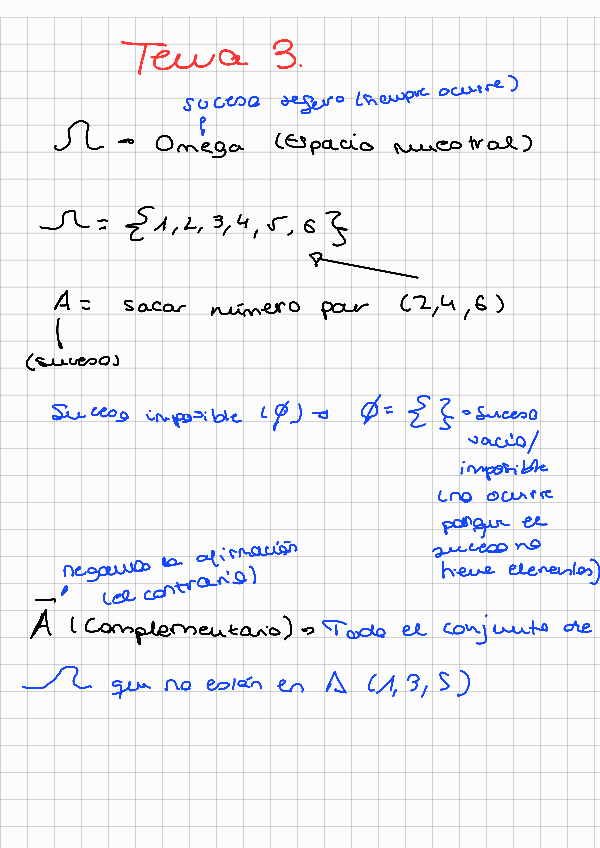 Tema 3.
suceso seguro (siempre ocurre)
Ω → Omega (Espacio muestral)
Ω = {1, 2, 3, 4, 5, 6}
A = sacar número par (2, 4, 6)
(suceso)
Suceso imposible (∅) → ∅ = { } → suceso
vacío/
imposible
(no ocurre
porque el
suceso no
tiene elementos)
negamos la afirmación
(el contrario)
A̅ (Complementario) → Todo el conjunto de
Ω que no están en A (1, 3, 5)